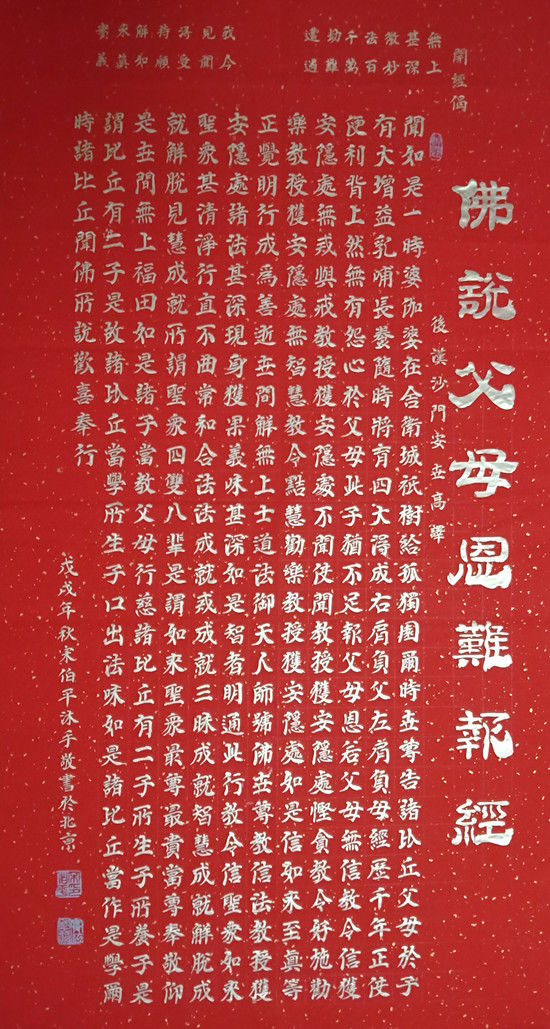 佛說父母恩難報經
後漢沙門安世高譯
開經偈
無上
甚深
微妙
法百
千萬
劫難
遭遇
我今
見聞
得受
持願
解如
來真
實義
聞如是一時婆伽婆在舍衛城祇樹給孤獨園爾時世尊告諸比丘父母於子
有大增益乳哺長養隨時將育四大得成右肩負父左肩負母經歷千年正使
便利背上然無有怨心於父母此子猶不足報父母恩若父母無信教令信獲
安隱處無戒與戒教授獲安隱處不聞使聞教授獲安隱處慳貪教令好施勸
樂教授獲安隱處無智慧教令黠慧勸樂教授獲安隱處如是信如來至真等
正覺明行成為善逝世間解無上士道法御天人師號佛世尊教信法教授獲
安隱處諸法甚深現身獲果義味甚深如是智者明通此行教令信聖眾如來
聖眾甚清淨行直不曲常和合法法成就戒成就三昧成就智慧成就解脫成
就解脫見慧成就所謂聖眾四雙八輩是謂如來聖眾最尊最貴當尊奉敬仰
是世間無上福田如是諸子當教父母行慈諸比丘有二子所生子所養子是
謂比丘有二子是故諸比丘當學所生子口出法味如是諸比丘當作是學爾
時諸比丘聞佛所說歡喜奉行
戊戌年秋宋伯平沐手敬書於北京